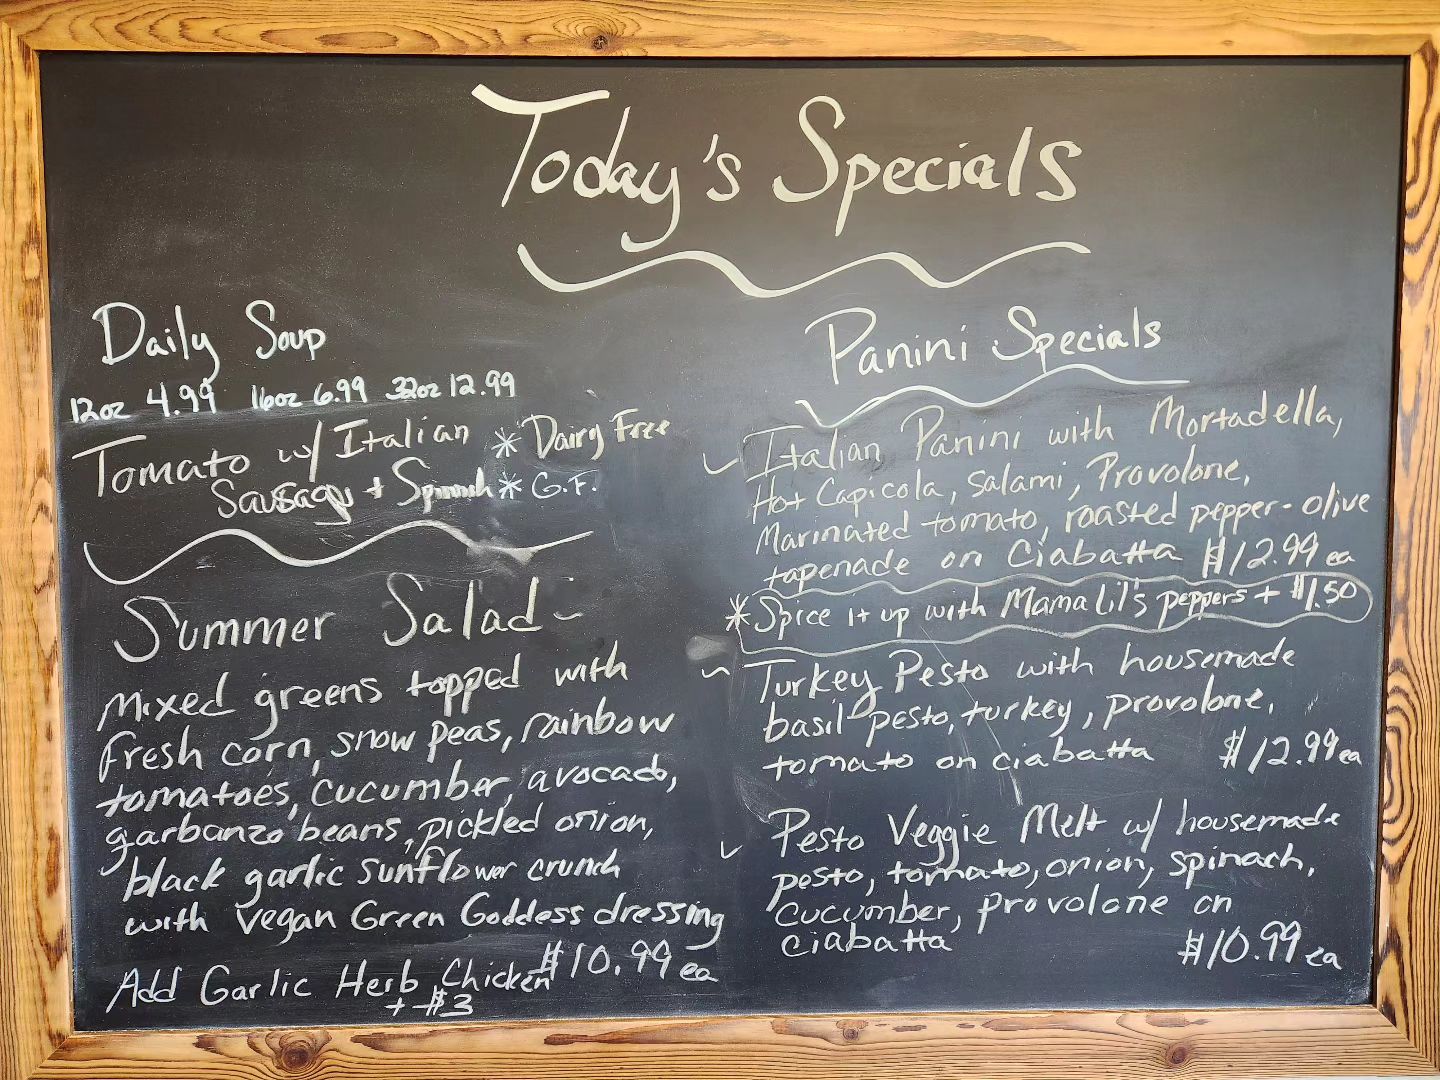 Today's Specials
Daily Soup
12oz 4.99 16oz 6.99 32oz 12.99
Tomato w/ Italian * Dairy Free
Sausage + Spinach * G.F.
Summer Salad -
Mixed greens topped with
fresh corn, snow peas, rainbow
tomatoes, cucumber, avocado,
garbanzo beans, pickled onion,
black garlic sunflower crunch
with vegan Green Goddess dressing
$10.99 ea
Add Garlic Herb Chicken
+ $3
Panini Specials
Italian Panini with Mortadella,
Hot Capicola, Salami, Provolone,
Marinated tomato, roasted pepper-olive
tapenade on Ciabatta $12.99 ea
*Spice it up with Mama Lil's peppers + $1.50
Turkey Pesto with housemade
basil pesto, turkey, provolone,
tomato on ciabatta $12.99 ea
Pesto Veggie Melt w/ housemade
pesto, tomato, onion, spinach,
cucumber, provolone on
ciabatta $10.99 ea